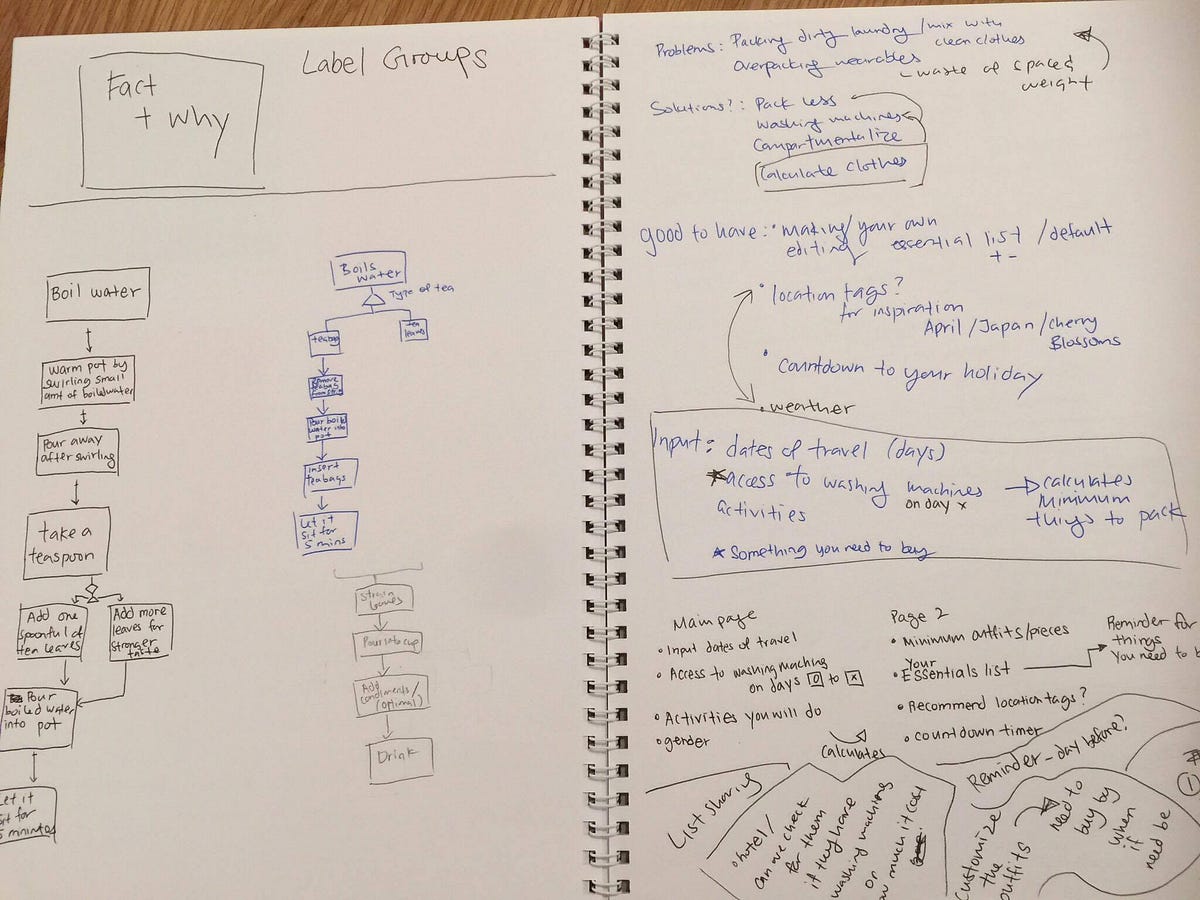 Label Groups
Fact
+ why
Boil water
Warm pot by
swirling small
amt of boiled water
Pour away
after swirling
take a
teaspoon
Add one
spoonful of
tea leaves
Add more
leaves for
stronger
taste
Pour
boiled water
into pot
Let it
sit for
5 minutes
Boils
water
Type of tea
teabag
tea
leaves
Remove
teabags
Pour boiled
water into
pot
insert
teabags
Let it
sit for
5 mins
Strain
leaves
Pour into cup
Add
condiments/
(optional)
Drink
Problems: Packing dirty laundry/mix with
clean clothes
overpacking wearables
- waste of space &
weight
Solutions?: Pack less
washing machines
Compartmentalize
Calculate clothes
good to have: • making/your own
editing essential list /default
+ -
• location tags?
for inspiration
April/Japan/cherry
Blossoms
• countdown to your holiday
• weather
Input: dates of travel (days)
* access to washing machines
on day x
activities
→ calculates
minimum
things to pack
* Something you need to buy
Main page
• Input dates of travel
• Access to washing maching
on days 0 to x
• Activities you will do
• gender
Calculates
Page 2
• Minimum outfits/pieces
Your
• Essentials list
Reminder for
things
You need to b
• Recommend location tags?
• countdown timer
List sharing
• hotel/
can we check
for them
if they have
washing maching
or
how much it cost
Reminder - day before?
Customize
the
outfits
need to
buy by
when
if
need be
1